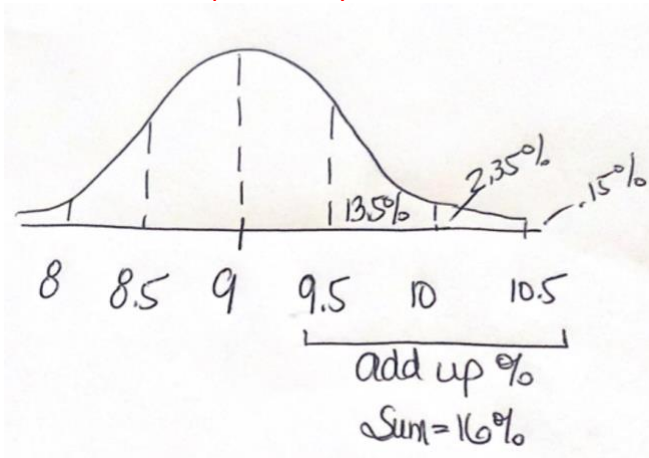 2.35%
.15%
13.5%
8 8.5 9 9.5 10 10.5
add up %
Sum=16%